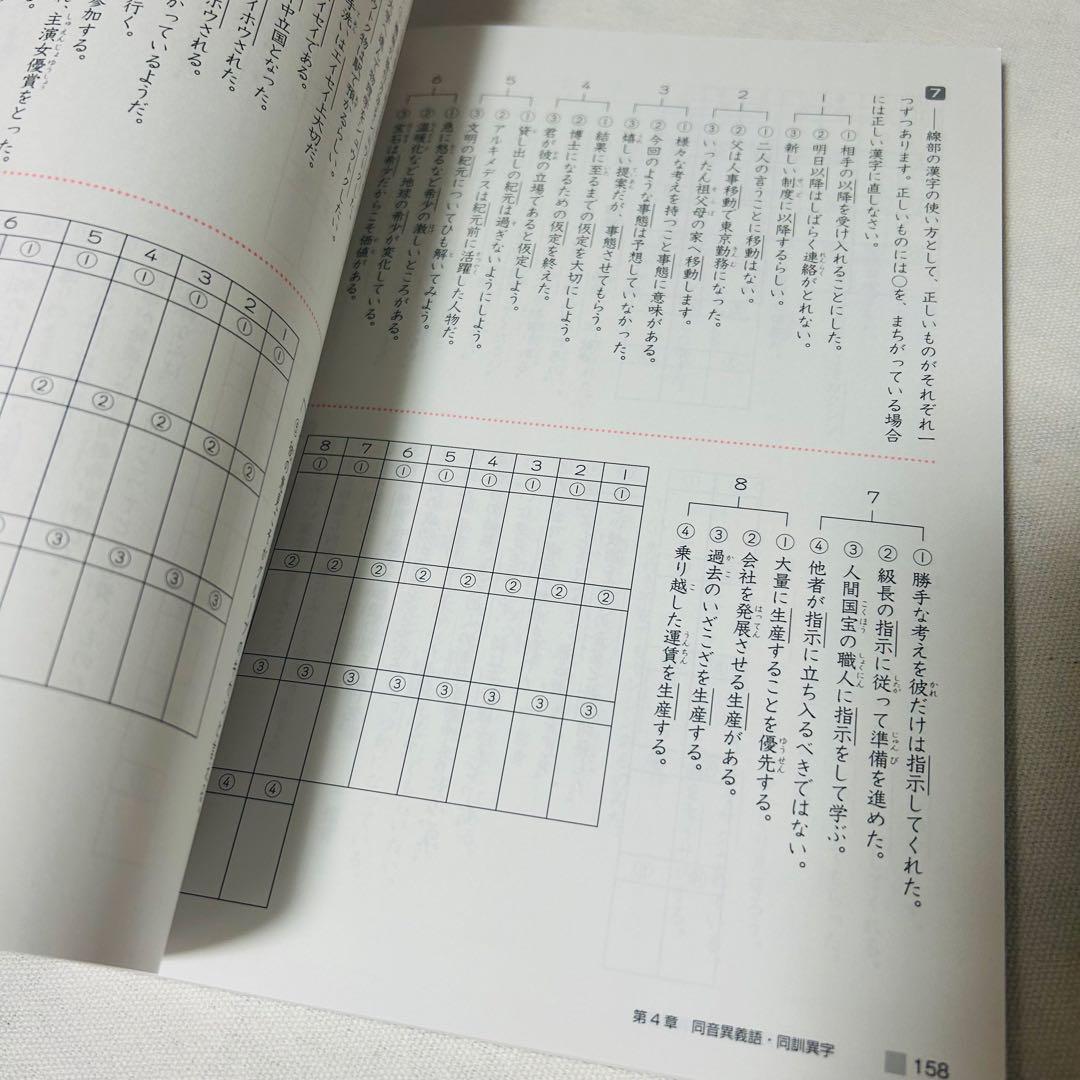 7 ――線部の漢字の使い方として、正しいものがそれぞれ一
つずつあります。正しいものには○を、まちがっている場合
には正しい漢字に直しなさい。
1
①相手の以降を受け入れることにした。
②明日以降はしばらく連絡がとれない。
③新しい制度に以降するらしい。
2
①二人の言うことに移動はない。
②父は人事移動で東京勤務になった。
③いったん祖父母の家へ移動します。
3
①様々な考えを持つこと事態に意味がある。
②今回のような事態は予想していなかった。
③嬉しい提案だが、事態させてもらう。
4
①結果に至るまでの仮定を大切にしよう。
②博士になるための仮定を終えた。
③君が彼の立場であると仮定しよう。
5
①貸し出しの紀元は過ぎないようにしよう。
②アルキメデスは紀元前に活躍した人物だ。
③文明の紀元についてひも解いてみよう。
6
①急に怒るなど希少の激しいところがある。
②温暖化など地球の希少が変化している。
③宝石は希少だからこそ価値がある。
7
①勝手な考えを彼だけは指示してくれた。
②級長の指示に従って準備を進めた。
③人間国宝の職人に指示をして学ぶ。
④他者が指示に立ち入るべきではない。
8
①大量に生産することを優先する。
②会社を発展させる生産がある。
③過去のいざこざを生産する。
④乗り越した運賃を生産する。
8 7 6 5 4 3 2 1
① ① ① ① ① ① ① ①
② ② ② ② ② ② ② ②
③ ③ ③ ③ ③ ③ ③ ③
④ ④
第4章 同音異義語・同訓異字
158
エイセイ上大切だ。
エイセイである。
中立国となった。
イホウされた。
ホウされる。
かっているようだ。
行く。
参加する。
主演女優賞をとった。
6 5 4 3 2 1
① ① ① ① ①
② ② ② ② ②
③ ③ ③ ③